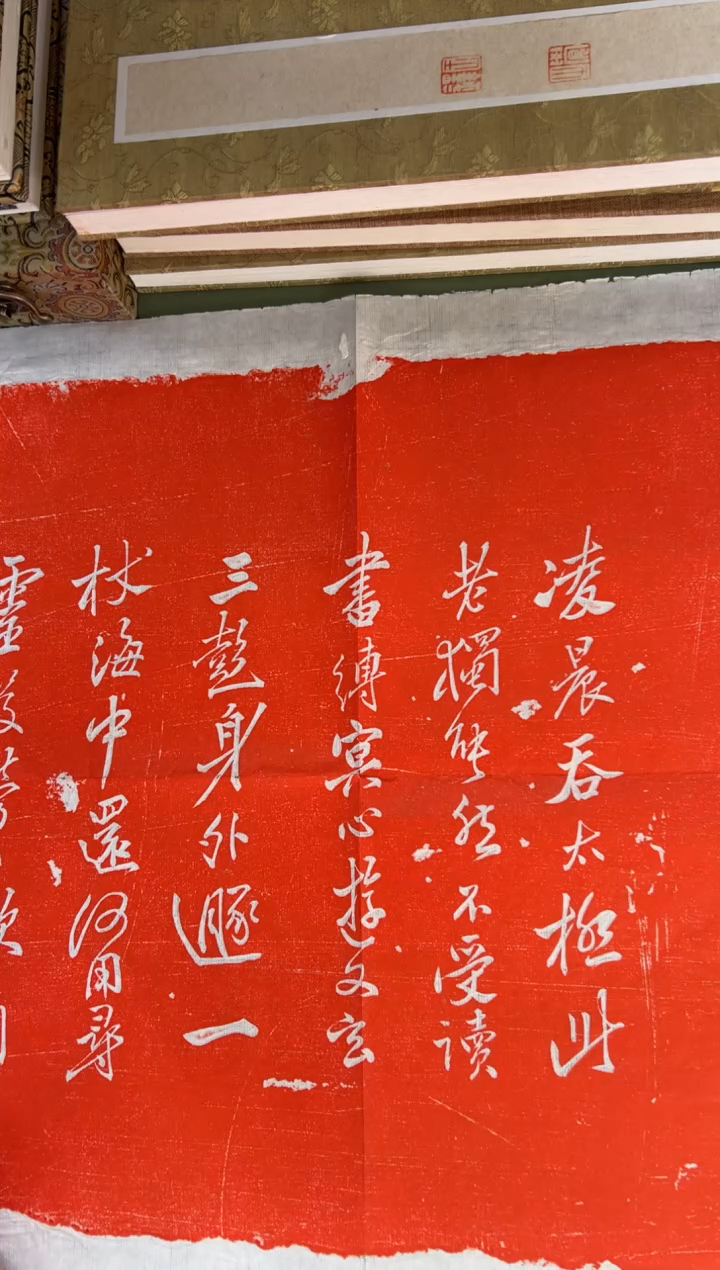 凌晨吞太極此
老獨能然不受讀
書縛冥心遊又玄
三彭身外遯一
杖海中還何用尋
靈